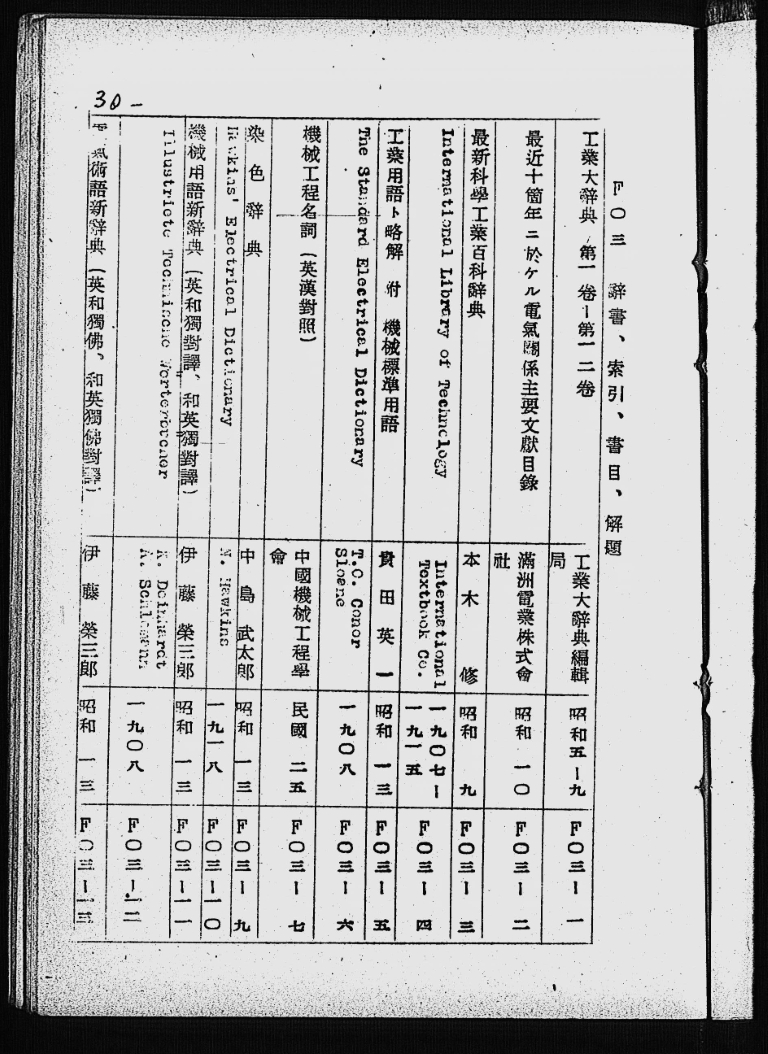 30-
F〇三 辞書、索引、書目、解題
工業大辞典 第一卷-第一二卷
工業大辞典編輯局
昭和五-九
F〇三-一
最近十箇年ニ於ケル電氣關係主要文獻目錄
滿洲電業株式會社
昭和 一〇
F〇三-二
最新科學工業百科辞典
本木 修
昭和 九
F〇三-三
International Library of Technology
International Textbook Co.
一九〇七-一九一五
F〇三-四
工業用語ト略解 附 機械標準用語
貴田英一
昭和 一三
F〇三-五
The Standard Electrical Dictionary
T.O. Conor Sloane
一九〇八
F〇三-六
機械工程名詞(英漢對照)
中國機械工程學會
民國 二五
F〇三-七
染色辞典
中島武太郎
昭和 一三
F〇三-九
Hawkins' Electrical Dictionary
N. Hawkins
一九一八
F〇三-一〇
機械用語新辞典(英和獨對譯、和英獨對譯)
伊藤榮三郎
昭和 一三
F〇三-一一
Illustriete Technische Worterbucher
K. Deinhardt
A. Schlomann
一九〇八
F〇三-一二
電氣術語新辞典(英和獨佛、和英獨佛對譯)
伊藤榮三郎
昭和 一三
F〇三-一三